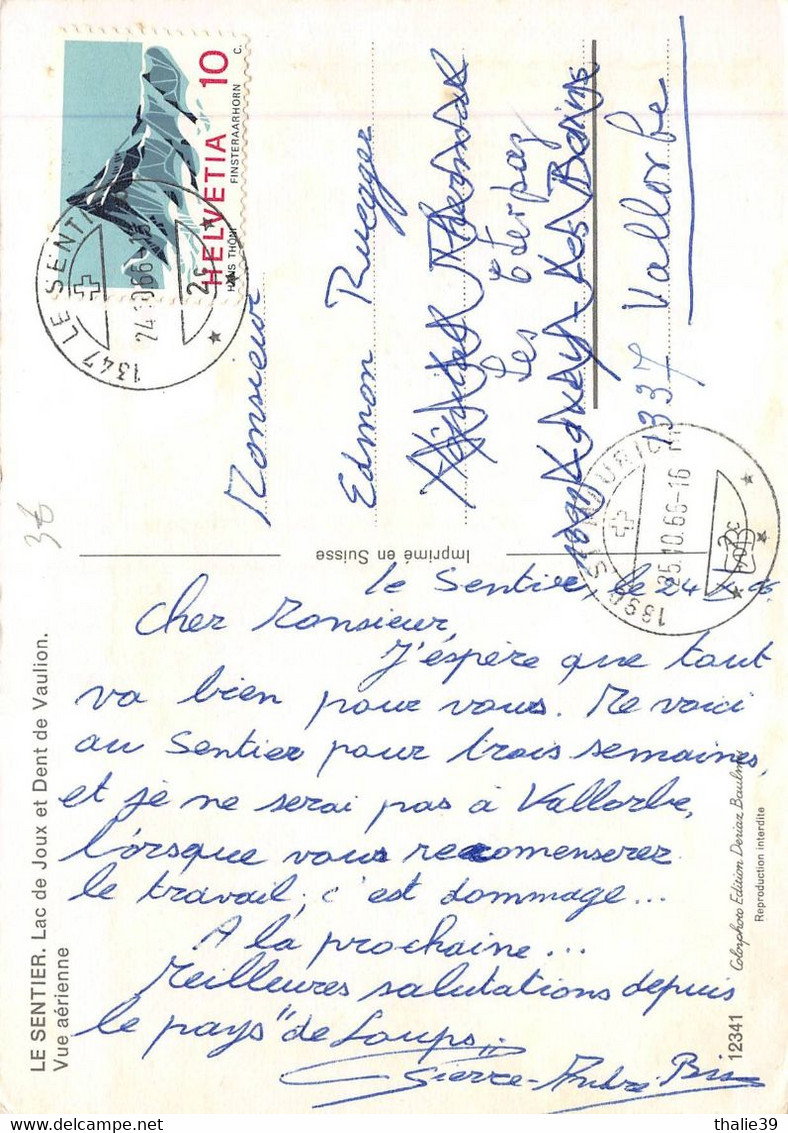 HELVETIA 10 c.
HANS THÖNI FINSTERAARHORN
1347 LE SENTIER
24.10.66-15
2c
Monsieur
Edmon Ruegger
Hôpital Thermal
Les Eterpaz
1891 Lavey-les-Bains
1337 Vallorbe
1890 ST-MAURICE
25.10.66-16
2c
Imprimé en Suisse
38
le Sentier, le 24
Cher Monsieur,
J'espère que tout
va bien pour vous. Me voici
au Sentier pour trois semaines,
et je ne serai pas à Vallorbe,
l'orsque vous recomenserez
le travail; c'est dommage...
A la prochaine...
Meilleures salutations depuis
le pays "de Loups"
Pierre-André
LE SENTIER. Lac de Joux et Dent de Vaulion.
Vue aérienne
12341 Colorphoto Edition Deriaz Baulmes
Reproduction interdite
thalie39